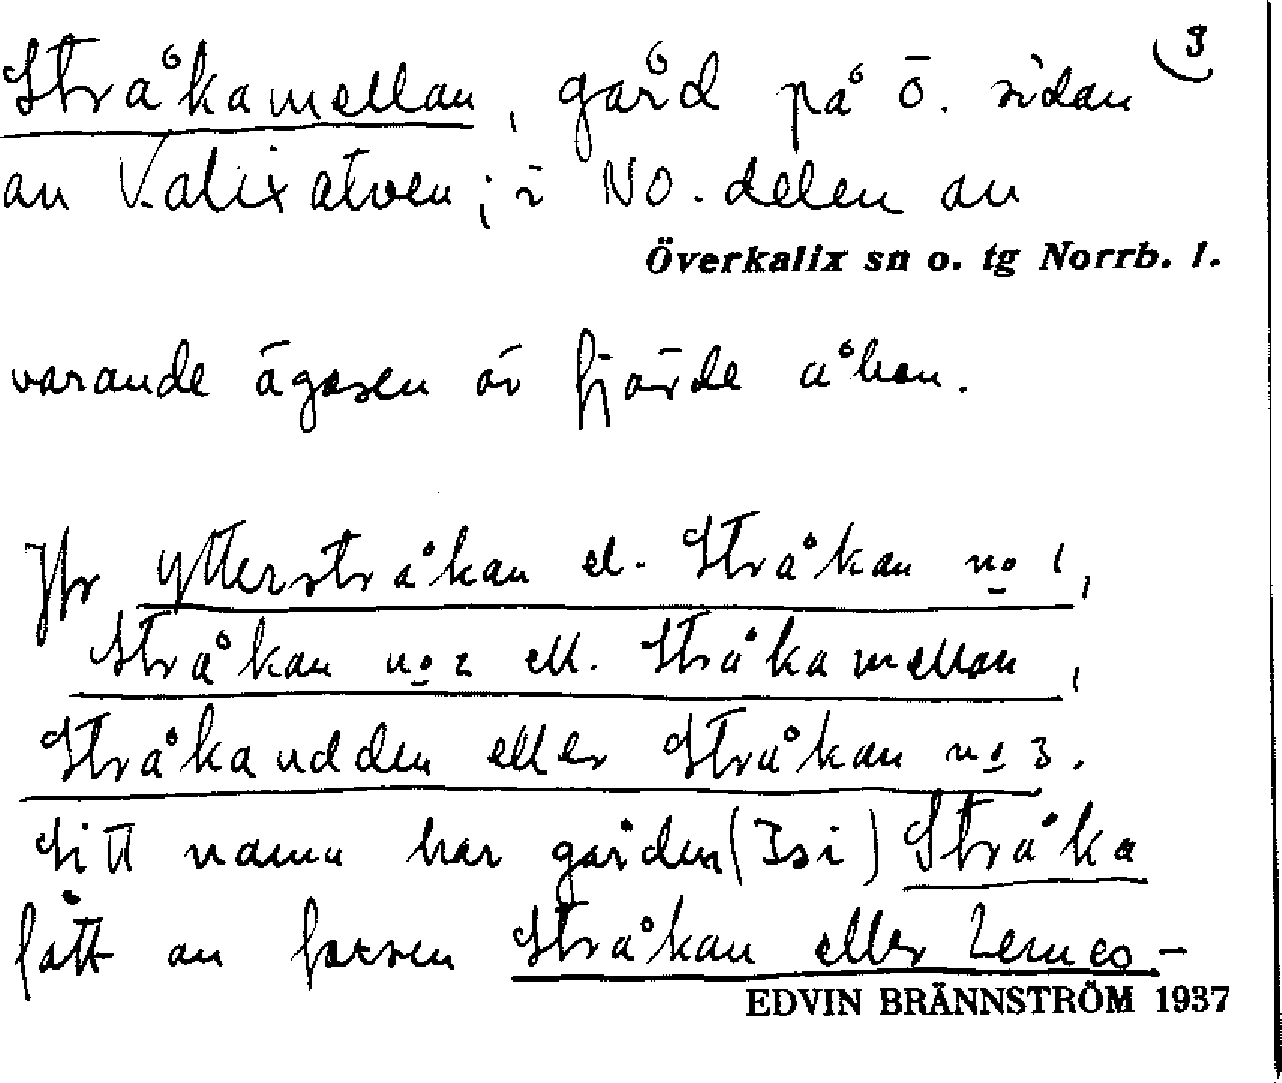 3
Stråkamellan, gård på ö. sidan
av Kalixälven; i NO. delen av
Överkalix sn o. tg Norrb. l.
varande ägaren är fjärde åbon.
Jfr Ytterstråkan el. Stråkan no 1,
Stråkan no 2 ell. Stråkamellan,
Stråkaudden eller Stråkan no 3.
Sitt namn har gården (Isi) Stråka
fått av forsen Stråkan eller
EDVIN BRÄNNSTRÖM 1937